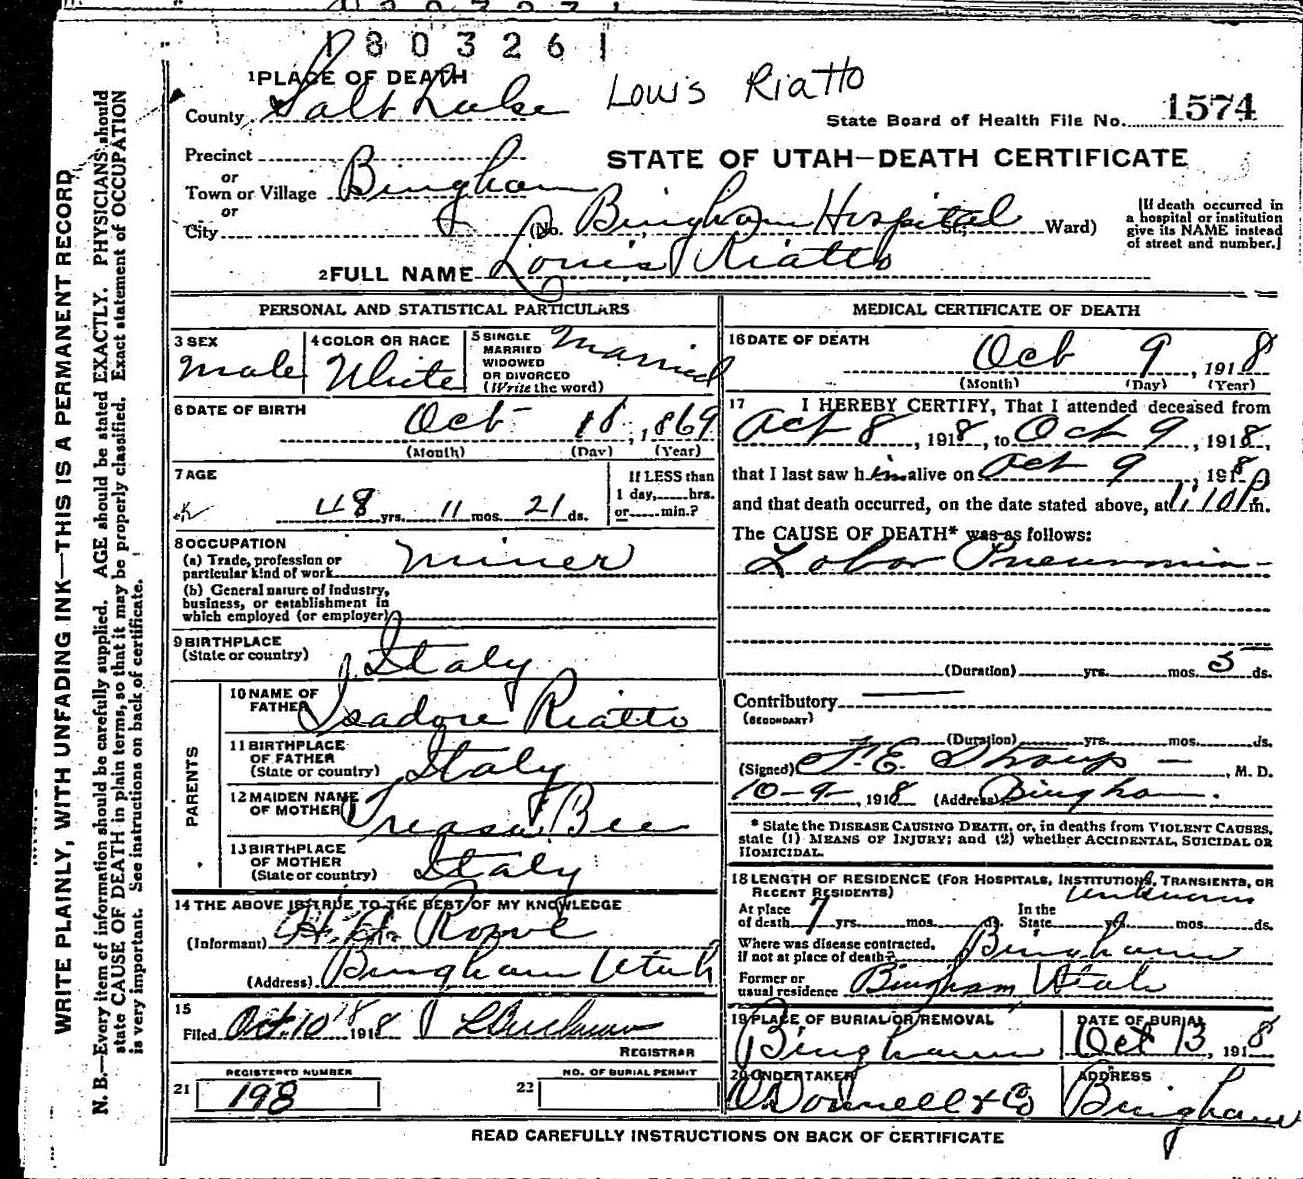 180326 1
1 PLACE OF DEATH
Louis Riatto
County Salt Lake
State Board of Health File No. 1574
Precinct
or
STATE OF UTAH—DEATH CERTIFICATE
Town or Village Bingham
or
City (No. Bingham Hospital St; Ward)
[If death occurred in
a hospital or institution
give its NAME instead
of street and number.]
2 FULL NAME Louis Riatto
PERSONAL AND STATISTICAL PARTICULARS
3 SEX
Male
4 COLOR OR RACE
White
5 SINGLE
MARRIED
WIDOWED
OR DIVORCED
(Write the word)
Married
6 DATE OF BIRTH
Oct 18, 1869
(Month) (Day) (Year)
7 AGE
48 yrs. 11 mos. 21 ds.
If LESS than
1 day, hrs.
or min.?
8 OCCUPATION
(a) Trade, profession or
particular kind of work Miner
(b) General nature of industry,
business, or establishment in
which employed (or employer)
9 BIRTHPLACE
(State or country) Italy
PARENTS
10 NAME OF
FATHER Isadore Riatto
11 BIRTHPLACE
OF FATHER
(State or country) Italy
12 MAIDEN NAME
OF MOTHER Treasa Bee
13 BIRTHPLACE
OF MOTHER
(State or country) Italy
14 THE ABOVE IS TRUE TO THE BEST OF MY KNOWLEDGE
(Informant)
(Address) Bingham Utah
15
Filed Oct. 10 1918
REGISTRAR
REGISTERED NUMBER
21 198
NO. OF BURIAL PERMIT
22
MEDICAL CERTIFICATE OF DEATH
16 DATE OF DEATH
Oct 9, 1918
(Month) (Day) (Year)
17 I HEREBY CERTIFY, That I attended deceased from
Oct 8, 1918, to Oct 9, 1918,
that I last saw him alive on Oct 9, 1918
and that death occurred, on the date stated above, at 1:10 P m.
The CAUSE OF DEATH* was as follows:
Lobar Pneumonia
(Duration) yrs. mos. 5 ds.
Contributory
(SECONDARY)
(Duration) yrs. mos. ds.
(Signed) F. E. Straup, M. D.
10-9-, 1918 (Address) Bingham.
* State the DISEASE CAUSING DEATH, or, in deaths from VIOLENT CAUSES,
state (1) MEANS OF INJURY; and (2) whether ACCIDENTAL, SUICIDAL OR
HOMICIDAL.
18 LENGTH OF RESIDENCE (FOR HOSPITALS, INSTITUTIONS, TRANSIENTS, OR
RECENT RESIDENTS)
At place
of death 7 yrs. mos. ds.
In the
State unknown yrs. mos. ds.
Where was disease contracted,
if not at place of death? Bingham
Former or
usual residence Bingham Utah
19 PLACE OF BURIAL OR REMOVAL
Bingham
DATE OF BURIAL
Oct 13, 1918
20 UNDERTAKER
O'Donnell & Co
ADDRESS
Bingham
READ CAREFULLY INSTRUCTIONS ON BACK OF CERTIFICATE
WRITE PLAINLY, WITH UNFADING INK—THIS IS A PERMANENT RECORD
N. B.—Every item of information should be carefully supplied. AGE should be stated EXACTLY. PHYSICIANS should
state CAUSE OF DEATH in plain terms, so that it may be properly classified. Exact statement of OCCUPATION
is very important. See instructions on back of certificate.